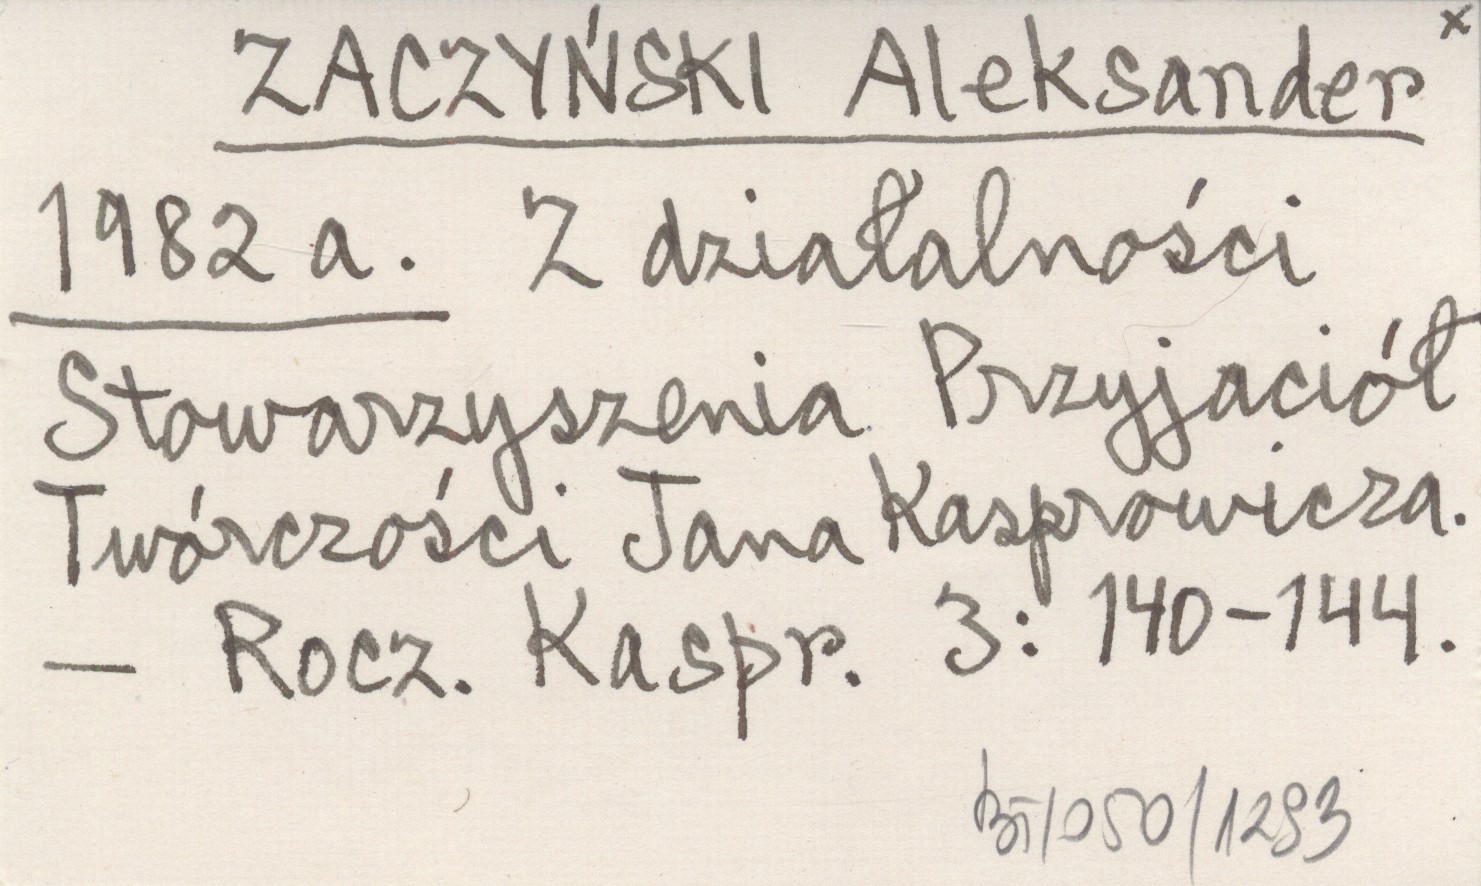 ZACZYŃSKI Aleksander x
1982 a. Z działalności
Stowarzyszenia Przyjaciół
Twórczości Jana Kasprowicza.
— Rocz. Kaspr. 3: 140-144.
/050/1283